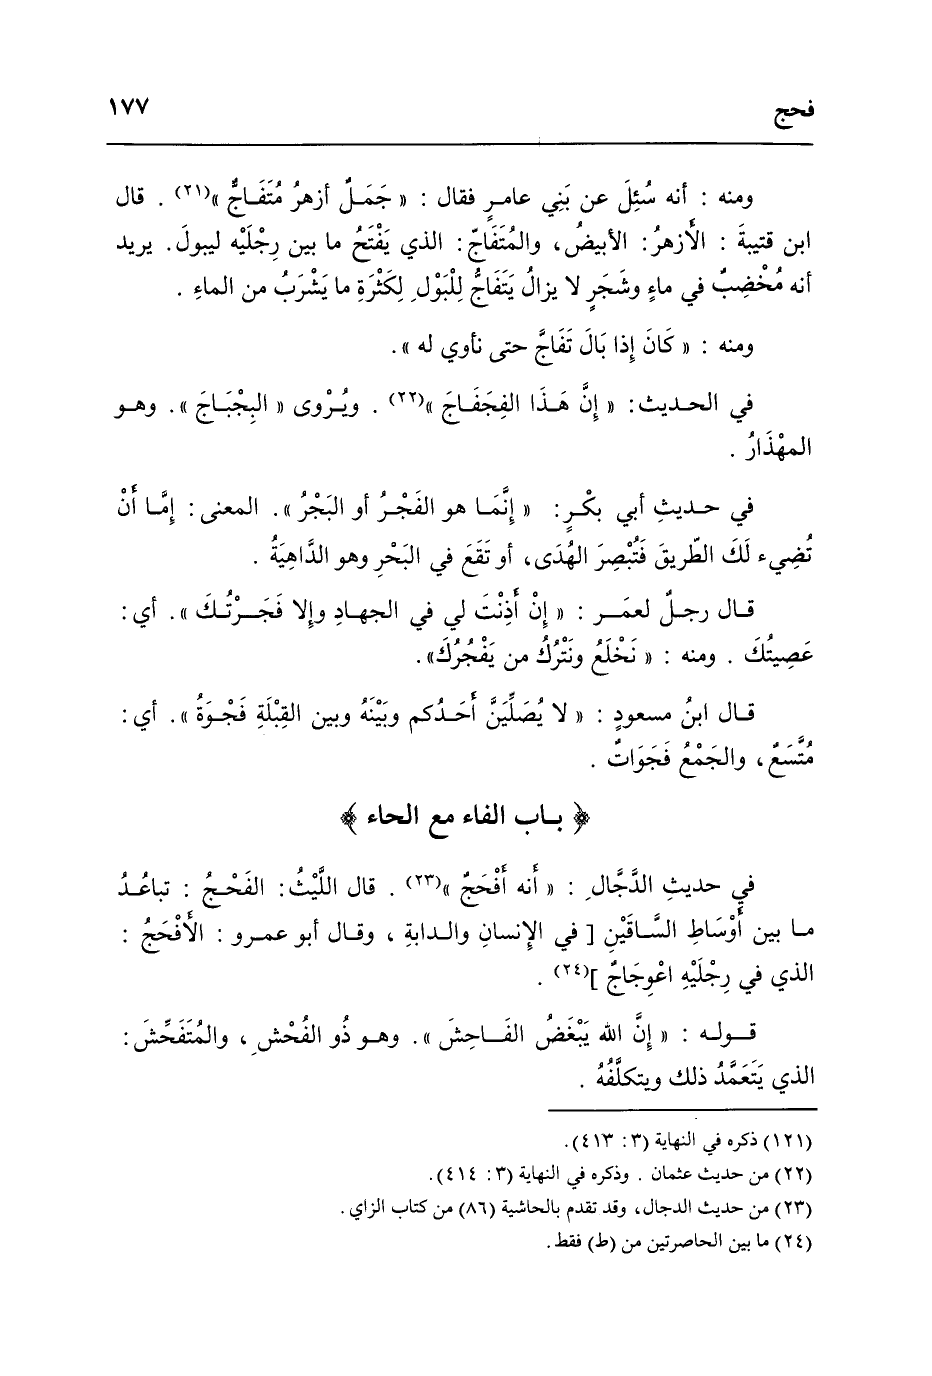 فحج ١٧٧
ومنه : أنه سُئِلَ عن بَنِي عامرٍ فقال : « جَمَلٌ أزهرُ مُتَفَاجٌّ »(٢١) . قال
ابن قتيبةَ : الأَزهرُ : الأبيضُ ، والمُتَفَاجّ : الذي يَفْتَحُ ما بين رِجْلَيْه ليبولَ . يريد
أنه مُخْضِبٌ في ماءٍ وشَجَرٍ لا يزالُ يَتَفَاجُّ لِلْبَوْلِ لِكَثْرَةِ ما يَشْرَبُ من الماءِ .
ومنه : « كَانَ إِذا بَالَ تَفَاجَّ حتى نأوي له » .
في الحديث : « إِنَّ هَذَا الفِجَفَاجَ »(٢٢) . ويُرْوى « البِجْبَاجَ » . وهو
المهْذَارُ .
في حديثِ أبي بكْرٍ : « إِنَّمَا هو الفَجْرُ أو البَجْرُ » . المعنى : إِمَّا أَنْ
تُضِيء لَكَ الطّريقَ فَتُبْصِرَ الهُدَى ، أو تَقَعَ في البَحْرِ وهو الدَّاهِيَةُ .
قال رجلٌ لعمَر : « إِنْ أَذِنْتَ لي في الجهادِ وإلا فَجَرْتُكَ » . أي :
عَصِيتُكَ . ومنه : « نَخْلَعُ ونَتْرُكُ من يَفْجُرُكَ» .
قال ابنُ مسعودٍ : « لا يُصَلِّيَنَّ أَحَدُكم وبَيْنَهُ وبين القِبْلَةِ فَجْوَةُ » . أي :
مُتَّسَعٌ ، والجَمْعُ فَجَوَاتٌ .
﴿ باب الفاء مع الحاء ﴾
في حديثِ الدَّجَّالِ : « أَنه أَفْحَجٌ »(٢٣) . قال اللَّيْثُ : الفَحْجُ : تباعُدُ
ما بين أَوْسَاطِ السَّاقَيْنِ [ في الإِنسانِ والدابةِ ، وقال أبو عمرو : الأَفْحَجُ :
الذي في رِجْلَيْهِ اعْوِجَاجٌ ](٢٤) .
قوله : « إِنَّ الله يَبْغَضُ الفَاحِشَ » . وهو ذُو الفُحْشِ ، والمُتَفَحِّشَ :
الذي يَتَعَمَّدُ ذلك ويتكلَّفُهُ .
(١٢١) ذكره في النهاية (٣ : ٤١٣) .
(٢٢) من حديث عثمان . وذكره في النهاية (٣ : ٤١٤) .
(٢٣) من حديث الدجال ، وقد تقدم بالحاشية (٨٦) من كتاب الزاي .
(٢٤) ما بين الحاصرتين من (ط) فقط .